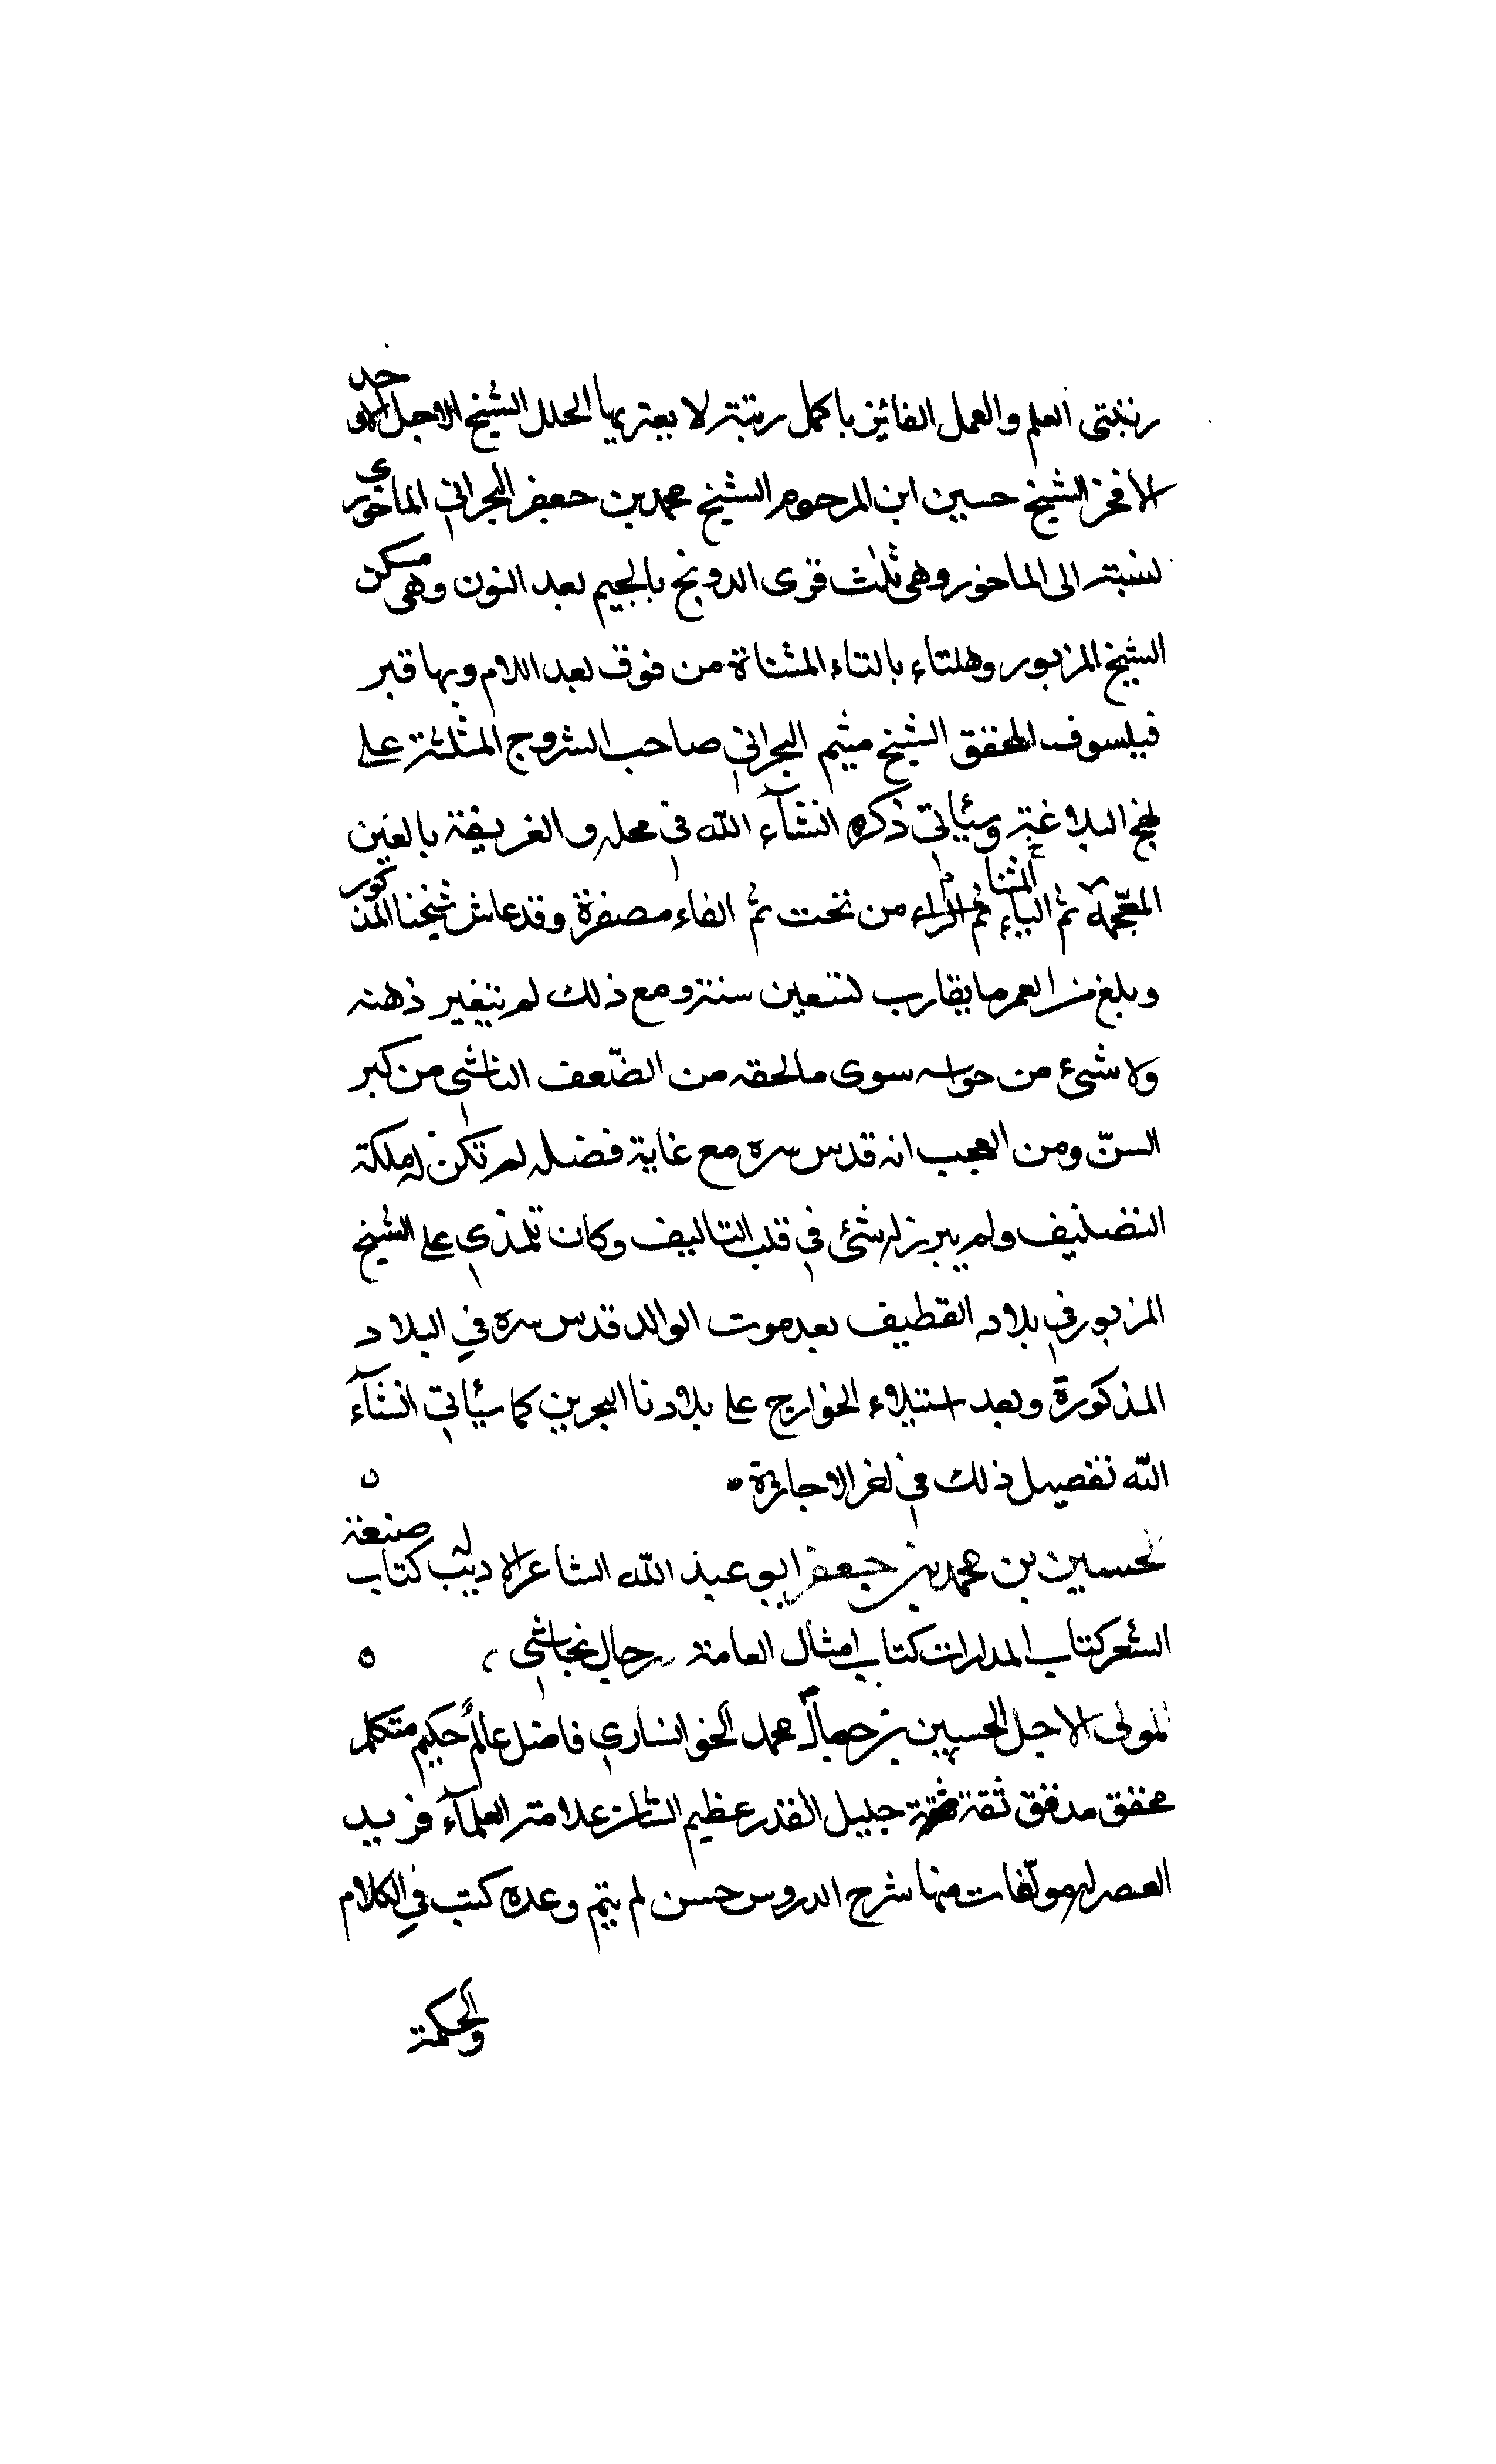 رتبتى العلم والعمل الفائز باكمل رتبة لا يعتريها الخلل الشيخ الاجل الاوحد
الافخر الشيخ حسين ابن المرحوم الشيخ محمد بن جعفر البحراني الماحوزي
نسبة الى الماحوز وهى ثلث قرى الدونج بالجيم بعد النون وهى مسكن
الشيخ المزبور وهلتاء بالتاء المثناة من فوق بعد اللام وبها قبر
فيلسوف المحقق الشيخ ميثم البحراني صاحب الشروح المثلثة على
نهج البلاغة وسيأتي ذكره انشآء الله فى محله والغريفة بالغين
المعجمة ثم الراء ثم الياء المثناة من تحت ثم الفاء مصغرة وقد عاش شيخنا المذكور
وبلغ من العمر ما يقارب تسعين سنة ومع ذلك لم يتغير ذهنه
ولا شىء من حواسه سوى ما لحقه من الضّعف الناشى من كبر
السنّ ومن العجب انه قدس سره مع غاية فضله لم تكن له ملكة
التصنيف ولم يبرز له شئ في قلب التاليف وكان تلمذي على الشيخ
المزبور في بلاد القطيف بعد موت الوالد قدس سره في البلاد
المذكورة وبعد استيلاء الخوارج على بلادنا البحرين كما سيأتي انشآء
الله تفصيل ذلك في اخر الاجازة ٥
الحسين بن محمد بن جعفر ابو عبد الله الشاعر الاديب له كتاب صنعة
الشعر كتاب المدارات كتاب امثال العامة رجال نجاشي ٥
المولى الاجل الحسين بن جمال محمد الخوانساري فاضل عالم حكيم متكلم
محقق مدقق ثقة جليل القدر عظيم الشان علامة العلمآء فريد
العصر له مولّفات منها شرح الدروس حسن لم يتم وعدة كتب في الكلام
والحكمة